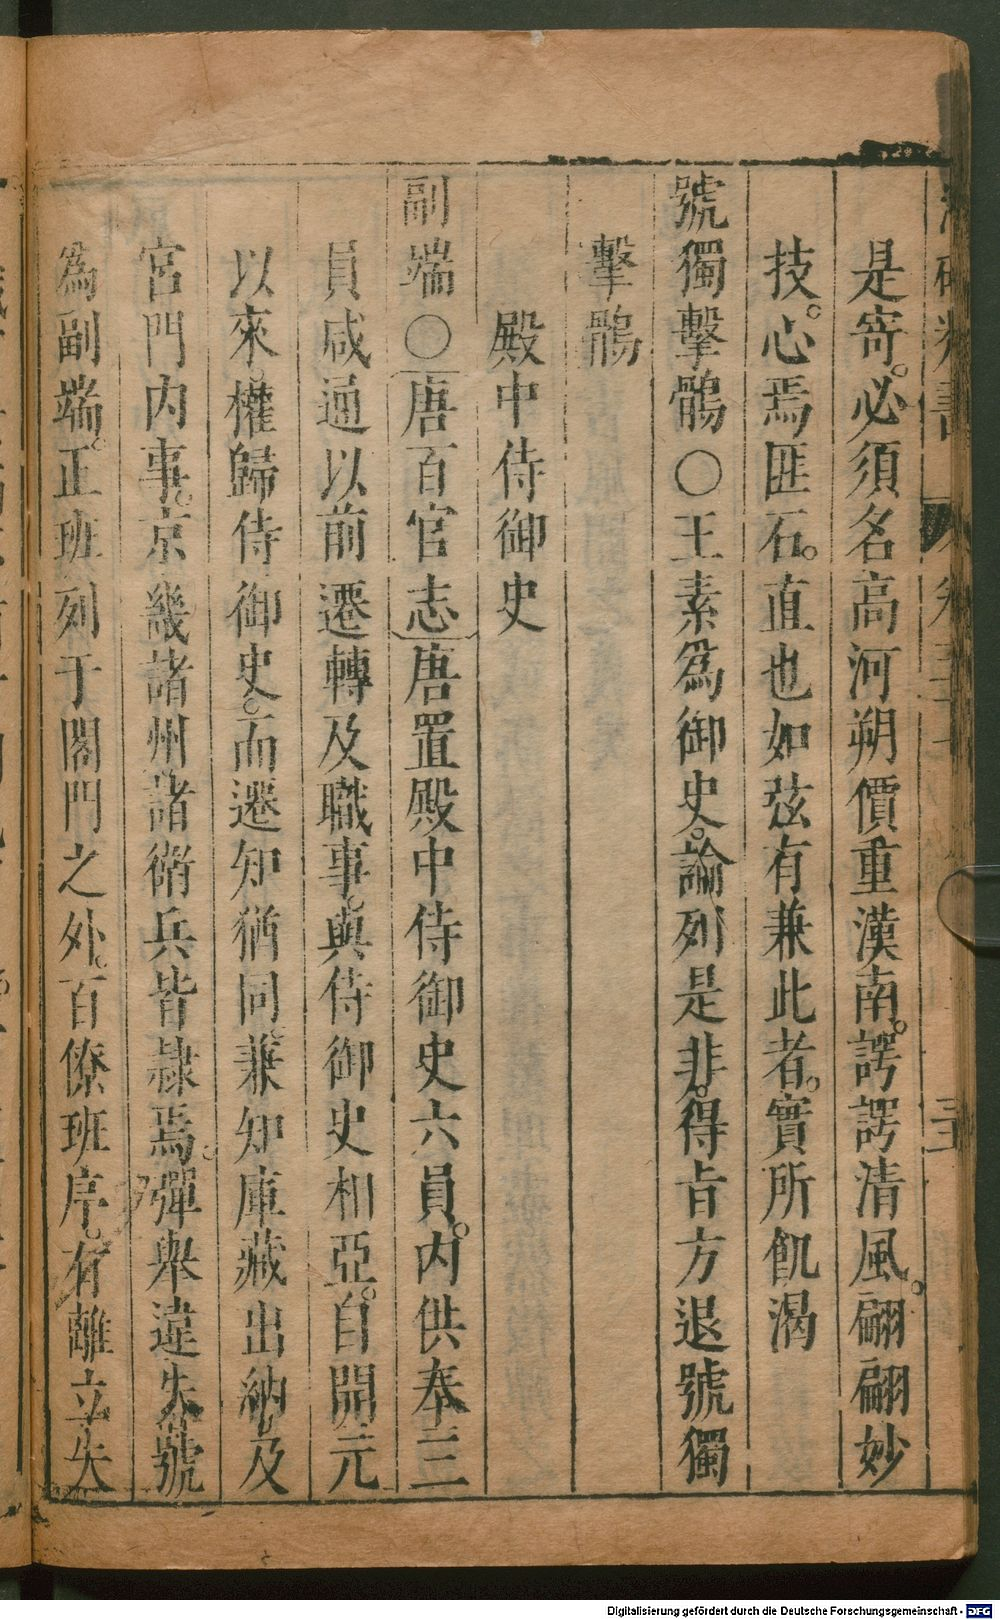 是寄。必須名高河朔價重漢南。諤諤清風。翩翩妙
技。心焉匪石。直也如弦有兼此者。實所飢渴
號獨擊鶻○王素為御史。論列是非。得旨方退號獨
擊鶻
殿中侍御史
副端○唐百官志唐置殿中侍御史六員。內供奉三
員咸通以前遷轉及職事。與侍御史相亞。自開元
以來。權歸侍御史。而遷知猶同兼知庫藏出納及
宮門內事。京幾諸州諸衛兵皆隸焉。彈舉違失號
為副端。正班列于閣門之外。百僚班序。有離立失
Digitalisierung gefördert durch die Deutsche Forschungsgemeinschaft - DFG